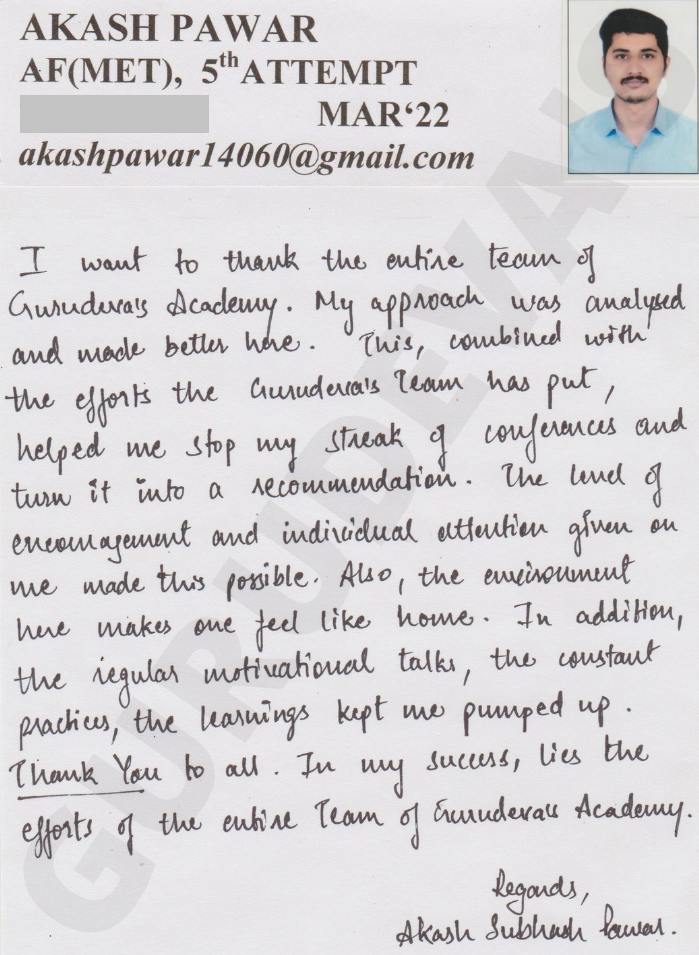 AKASH PAWAR
AF(MET), 5th ATTEMPT
MAR'22
akashpawar14060@gmail.com
I want to thank the entire team of
Gurudeva's Academy. My approach was analysed
and made better here. This, combined with
the efforts the Gurudeva's Team has put,
helped me stop my streak of conferences and
turn it into a recommendation. The level of
encouragement and individual attention given on
me made this possible. Also, the environment
here makes one feel like home. In addition,
the regular motivational talks, the constant
practices, the learnings kept me pumped up.
Thank You to all. In my success, lies the
efforts of the entire Team of Gurudevas Academy.
Regards,
Akash Subhash Pawar.
GURUDEVA'S